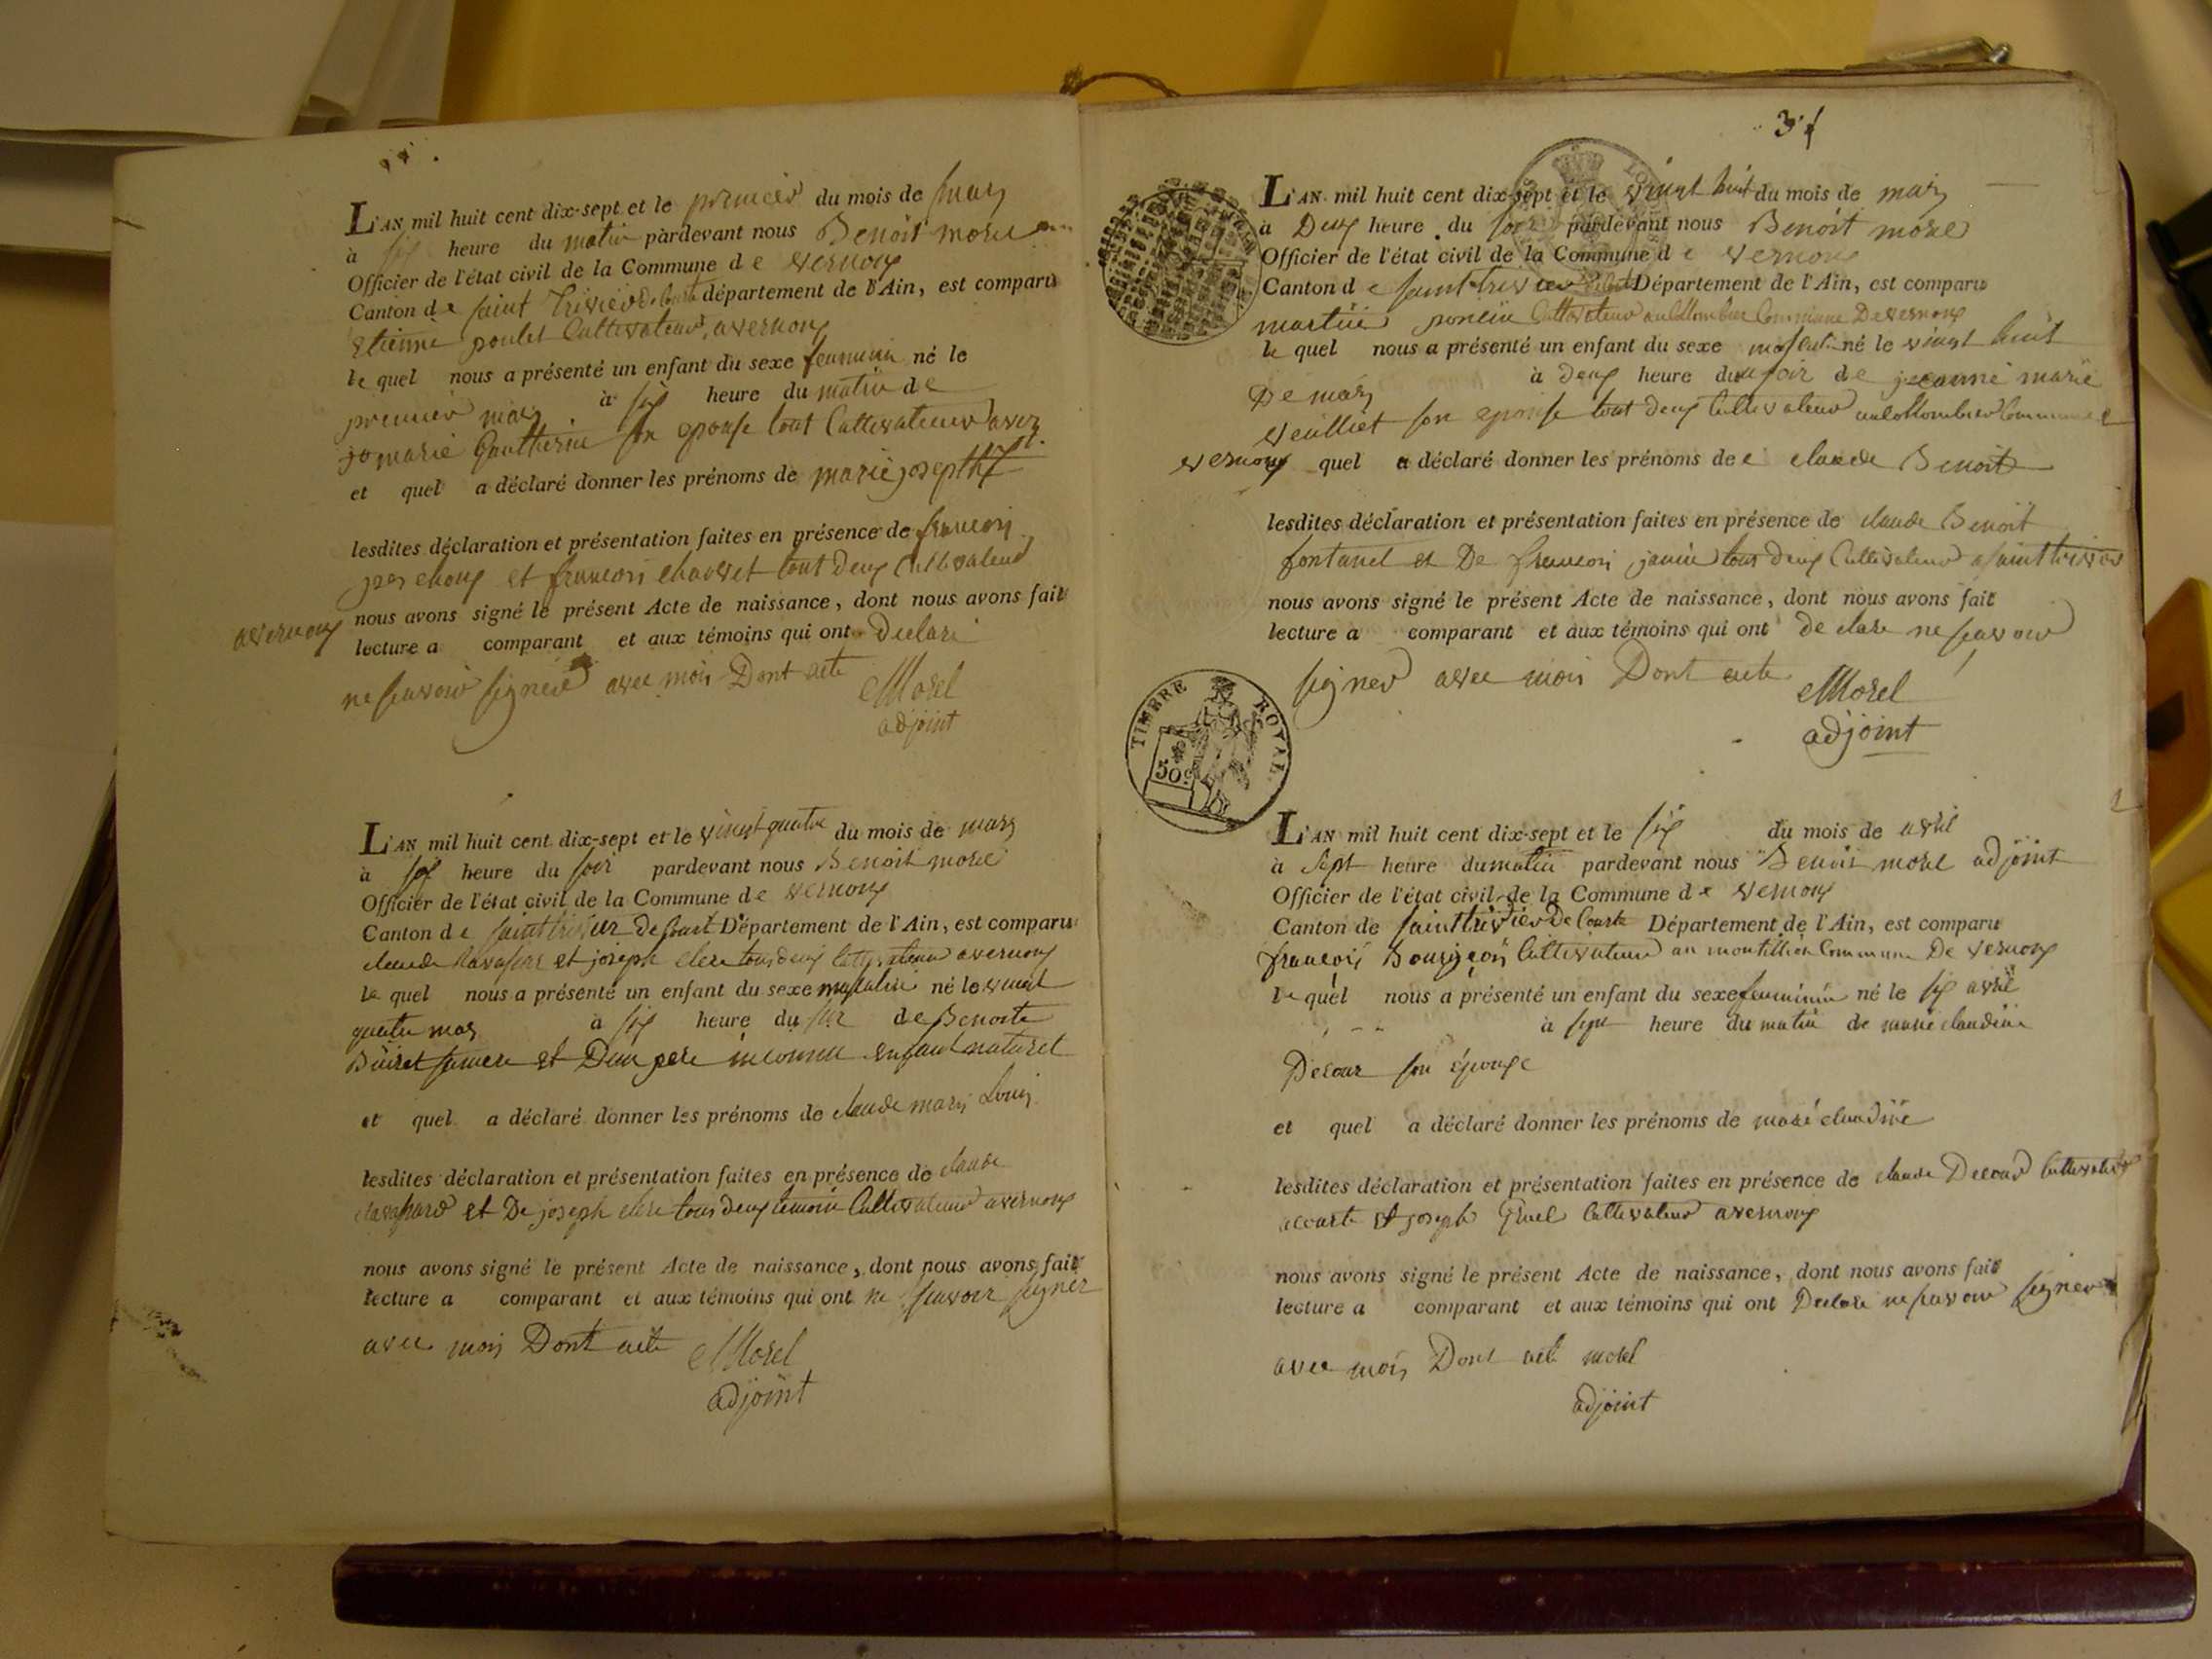 L'AN mil huit cent dix-sept et le premier du mois de mars
à six heure du matin pardevant nous Benoit morel
Officier de l'état civil de la Commune de vernoux
Canton de saint trivier de Courte département de l'Ain, est comparu
Etienne poulet Cultivateur avernoux
le quel nous a présenté un enfant du sexe feminin né le
premier mars à six heure du matin de
marie Gautherin son epouse tout Cultivateur
et quel a déclaré donner les prénoms de marie josepth
lesdites déclaration et présentation faites en présence de francois
et francois chauvet tout deux Cultivateur
avernoux
nous avons signé le présent Acte de naissance, dont nous avons fait
lecture a comparant et aux témoins qui ont Declare
ne scavoir signer avec mois Dont acte
Morel
adjoint
L'AN mil huit cent dix-sept et le vingt quatre du mois de mars
à six heure du soir pardevant nous Benoit morel
Officier de l'état civil de la Commune de vernoux
Canton de saint trivier de Court Département de l'Ain, est comparu
claude et joseph clere tous deux Cultivateur avernoux
le quel nous a présenté un enfant du sexe masculin né le vingt
quatre mars à six heure du soir de Benoite
Buiret sa mere et Dun pere inconnu enfant naturel
et quel a déclaré donner les prénoms de claude marie Louis
lesdites déclaration et présentation faites en présence de claude
et De joseph clere tous deux temoin Cultivateur avernoux
nous avons signé le présent Acte de naissance, dont nous avons fait
lecture a comparant et aux témoins qui ont ne scavoir signer
avec mois Dont acte Morel
adjoint
L'AN mil huit cent dix-sept et le vingt huit du mois de mars
à Deux heure du soir pardevant nous Benoit morel
Officier de l'état civil de la Commune de vernoux
Canton de saint trivier Département de l'Ain, est comparu
martin poncin Cultivateur au Collombier Commune De vernoux
le quel nous a présenté un enfant du sexe masculin né le vingt huit
De mars à deux heure du soir de jeanne marie
veuillet son epouse tout deux Cultivateur au Collombier Commune
vernoux quel a déclaré donner les prénoms de claude Benoit
lesdites déclaration et présentation faites en présence de claude Benoit
fontanel et De francois janin tous deux Cultivateur a saint trivier
nous avons signé le présent Acte de naissance, dont nous avons fait
lecture a comparant et aux témoins qui ont declare ne scavoir
signer avec mois Dont acte
Morel
adjoint
TIMBRE ROYAL
50c
L'AN mil huit cent dix-sept et le six du mois de avril
à sept heure du matin pardevant nous Benoit morel adjoint
Officier de l'état civil de la Commune de vernoux
Canton de saint trivier De Courte Département de l'Ain, est comparu
francois Bourgeois Cultivateur au montillion Commune De vernoux
le quel nous a présenté un enfant du sexe feminin né le six avril
à sept heure du matin de marie claudine
Decour son épouse
et quel a déclaré donner les prénoms de marie claudine
lesdites déclaration et présentation faites en présence de claude Decour Cultivateur
acourte et joseph Gruel Cultivateur avernoux
nous avons signé le présent Acte de naissance, dont nous avons fait
lecture a comparant et aux témoins qui ont Declare ne scavoir signer
avec mois Dont acte morel
adjoint